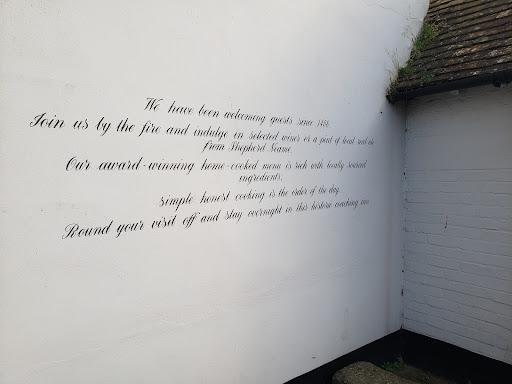 We have been welcoming guests since 1456.
Join us by the fire and indulge in selected wines or a pint of local real ale
from Shepherd Neame.
Our award-winning home-cooked menu is rich with locally sourced
ingredients;
simple honest cooking is the order of the day.
Round your visit off and stay overnight in this historic coaching inn.